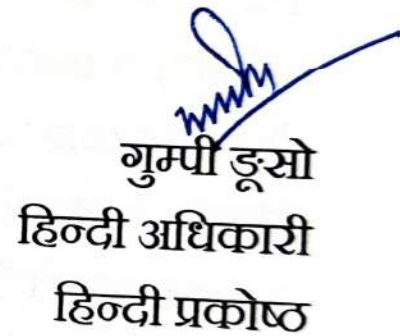 गुम्पी ङूसो
हिन्दी अधिकारी
हिन्दी प्रकोष्ठ